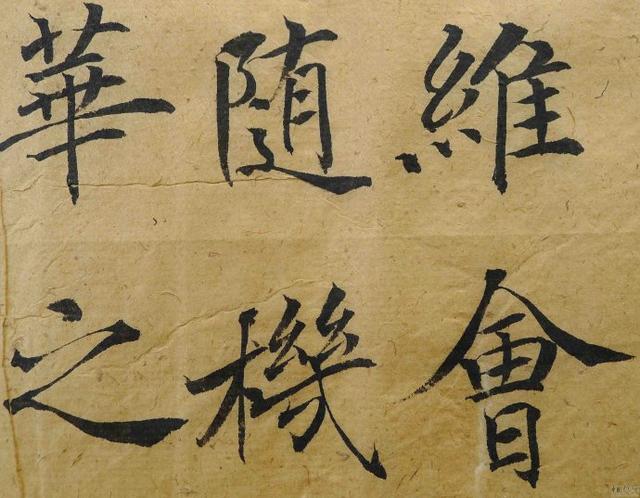 維會
随機
華之